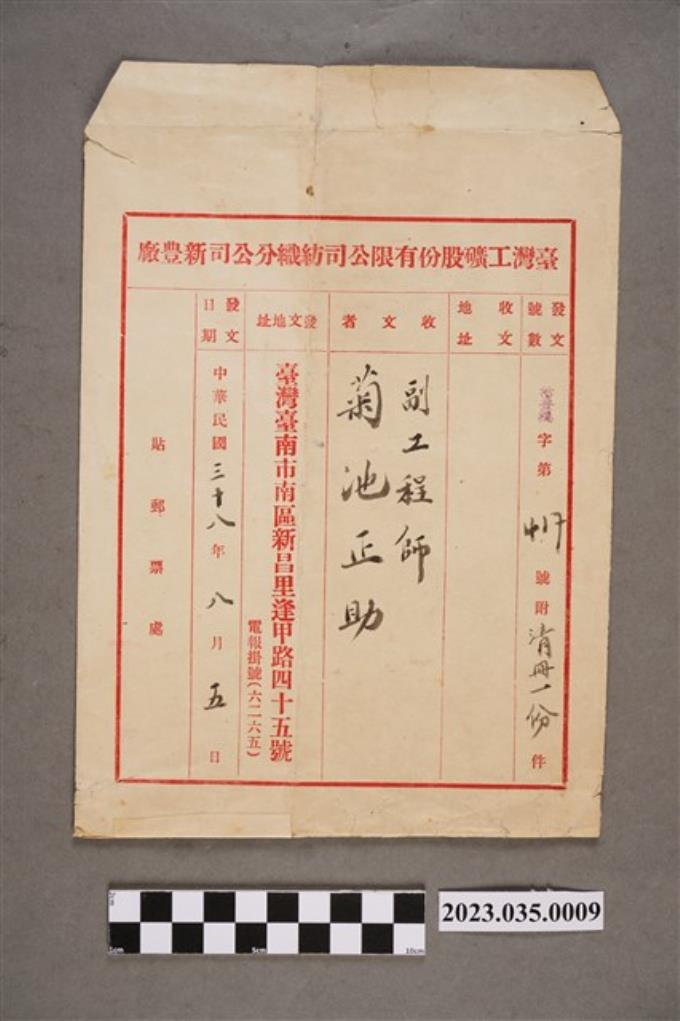 臺灣工礦股份有限公司紡織分公司新豐廠
發文號數
字第 號附清冊一份件
收文地址
收文者
副工程師
菊池正助
發文地址
臺灣臺南市南區新昌里逢甲路四十五號
電報掛號(六二六五)
發文日期
中華民國三十八年八月五日
貼郵票處
1cm 5cm 10cm
2023.035.0009